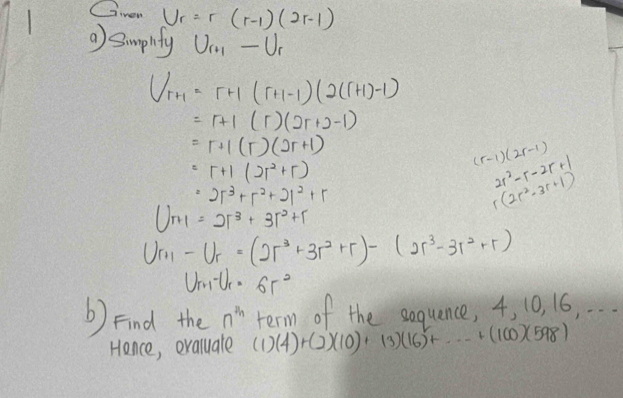 1
Given Ur = r (r-1)(2r-1)
a) Simplify Ur+1 - Ur
Ur+1 = r+1 (r+1-1)(2(r+1)-1)
= r+1 (r)(2r+2-1)
= r+1(r)(2r+1)
= r+1 (2r²+r)
= 2r³+r²+2r²+r
Ur+1 = 2r³ + 3r²+r
(r-1)(2r-1)
2r²-r-2r+1
r(2r²-3r+1)
Ur+1 - Ur = (2r³+3r²+r)- (2r³-3r²+r)
Ur+1-Ur = 6r²
b) Find the nth term of the sequence, 4, 10, 16, ...
Hence, evaluate (1)(4)+(2)(10)+(3)(16)+ ... + (100)(598)